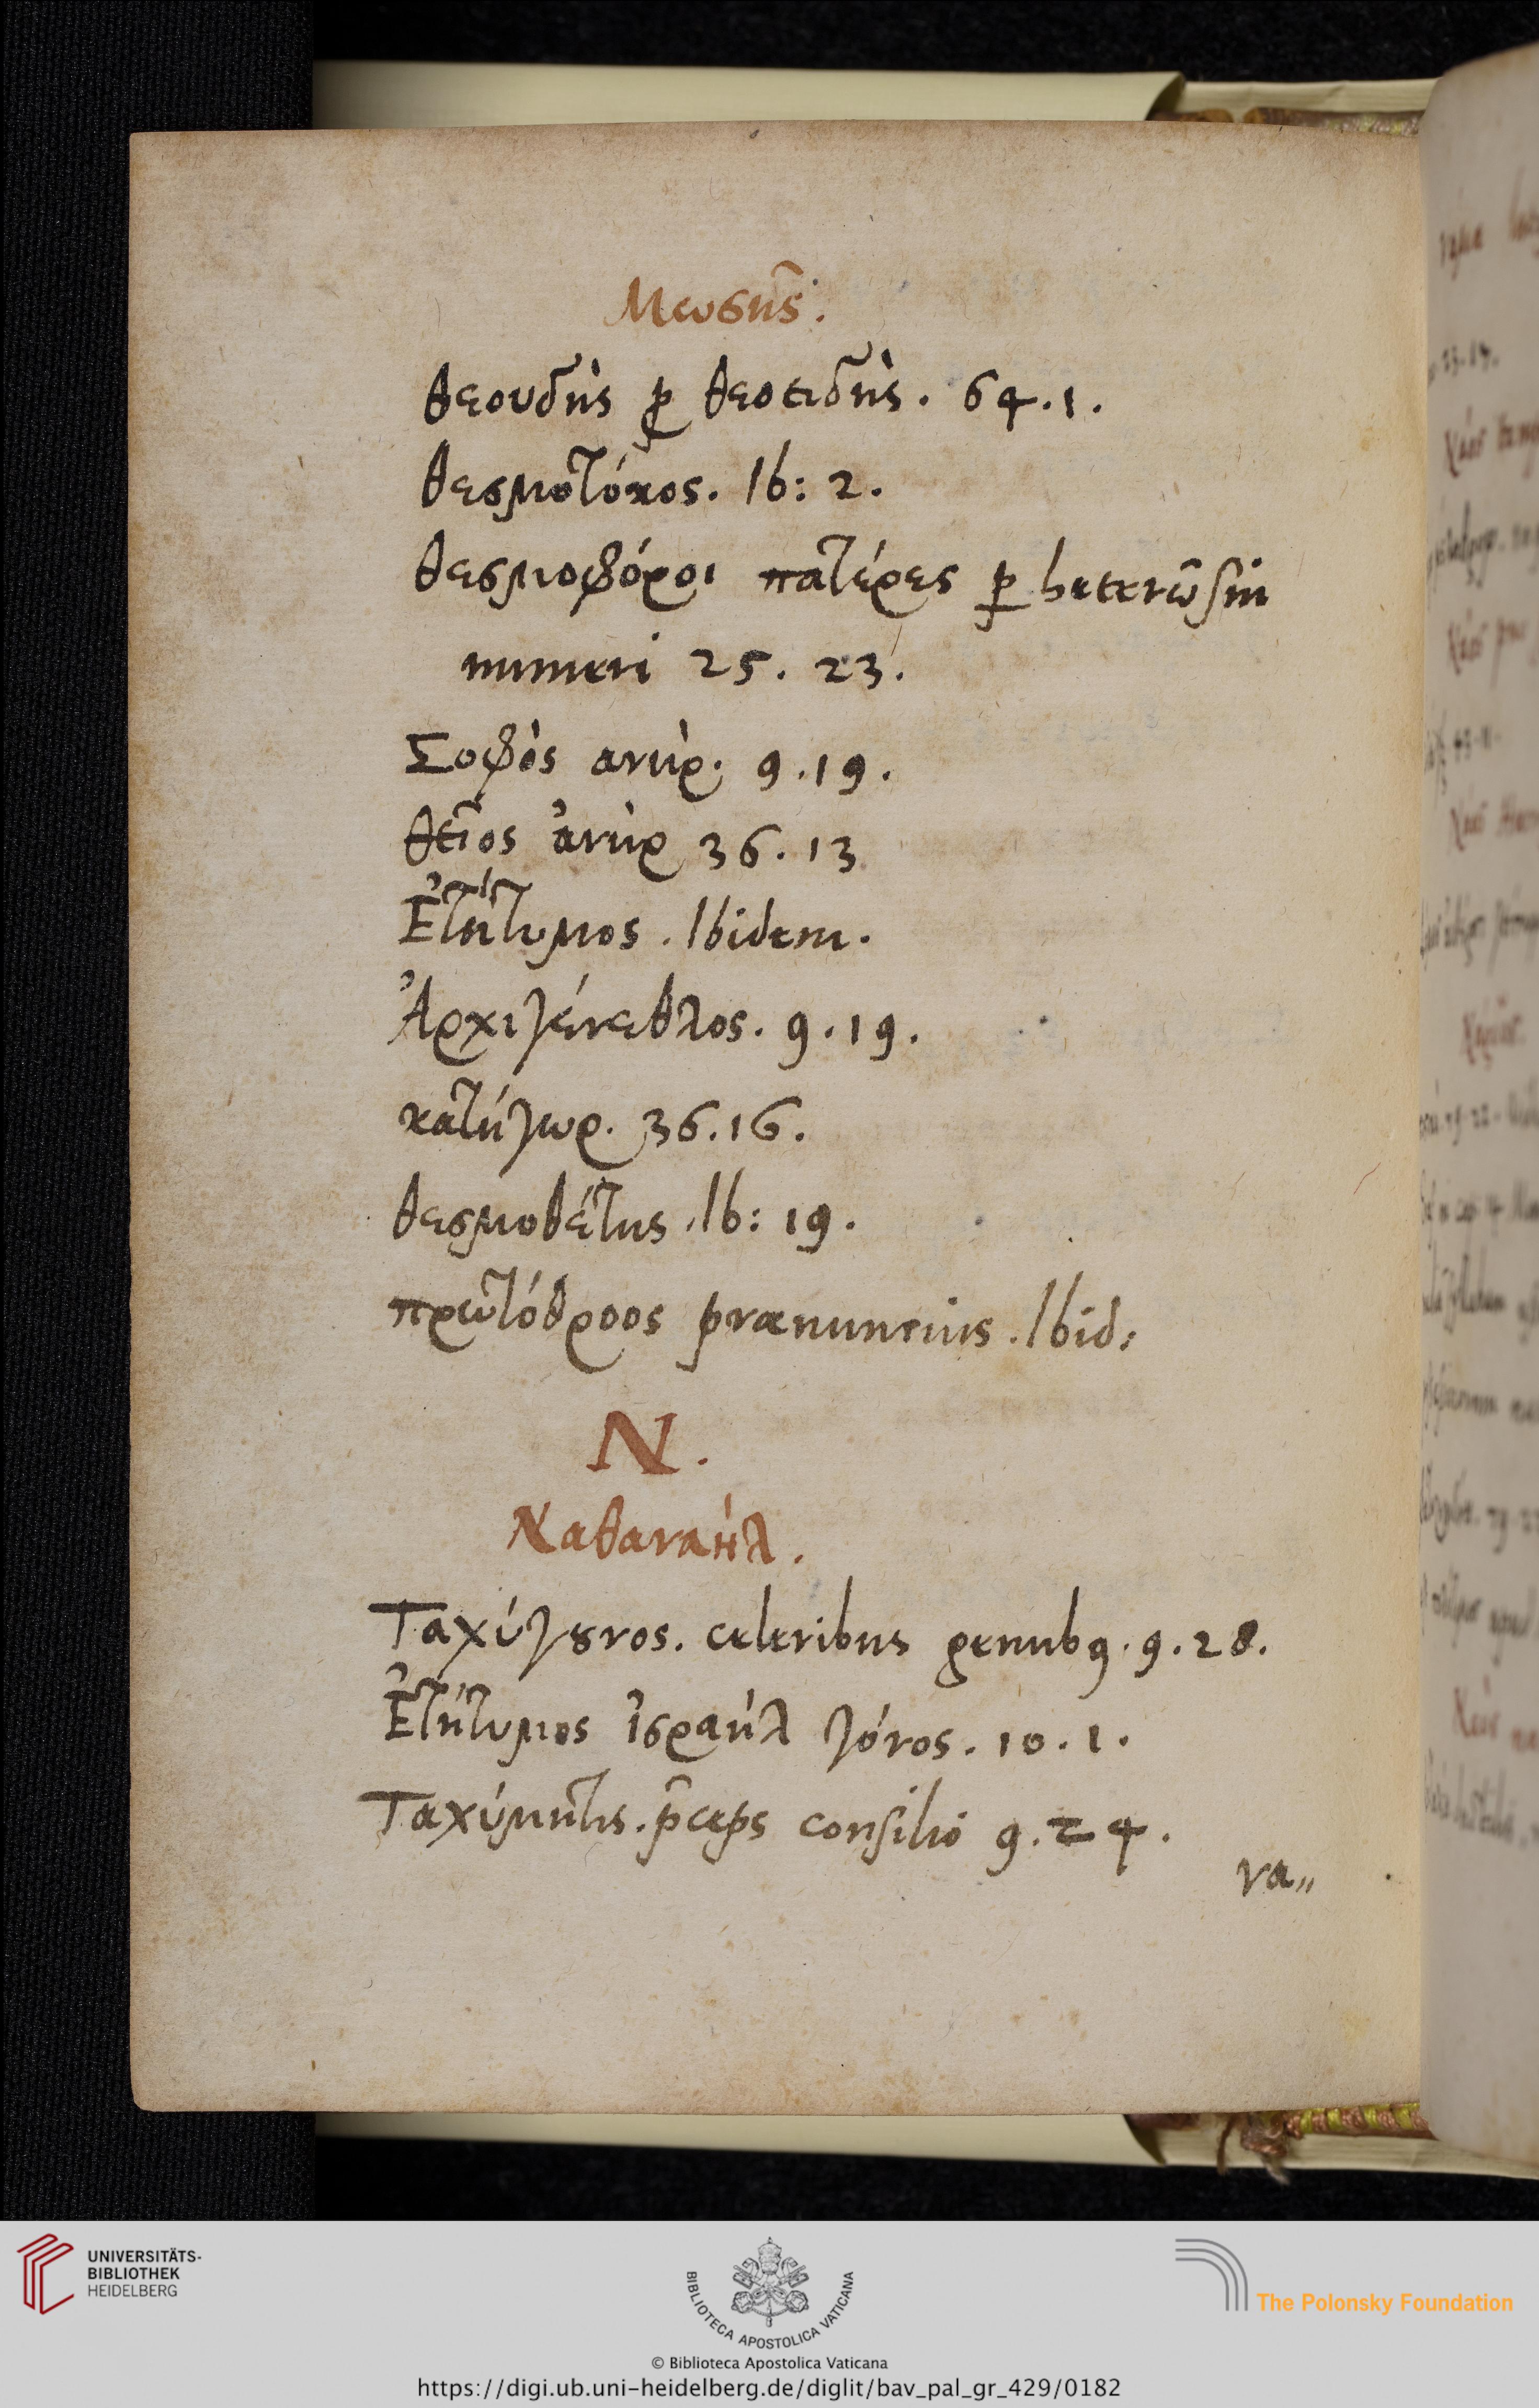 Μωσῆς.
θεουδὴς ꝑ θεοειδὴς. 64.1.
θεσμοτόκος. Ib: 2.
θεσμοφόροι πατέρες ꝑ heterωsin
numeri 25. 23.
Σοφὸς ανὴρ. 9.19.
θεῖος ἀνὴρ 36.13
Ἐτήτυμος. Ibidem.
Ἀρχιγένεθλος. 9.19.
κατήγωρ. 36.16.
θεσμοθέτης. Ib: 19.
πρωτόθροος prænuncius. Ibid:
N.
Ναθαναήλ.
Ταχύγȣνος. celeribus genubꝰ. 9.28.
Ἐτήτυμος ἰσραὴλ γόνος. 10.1.
Ταχύμητις. p̄ceps consilio 9.24.
να„
UNIVERSITÄTS-
BIBLIOTHEK
HEIDELBERG
BIBLIOTECA APOSTOLICA VATICANA
The Polonsky Foundation
© Biblioteca Apostolica Vaticana
https://digi.ub.uni-heidelberg.de/diglit/bav_pal_gr_429/0182